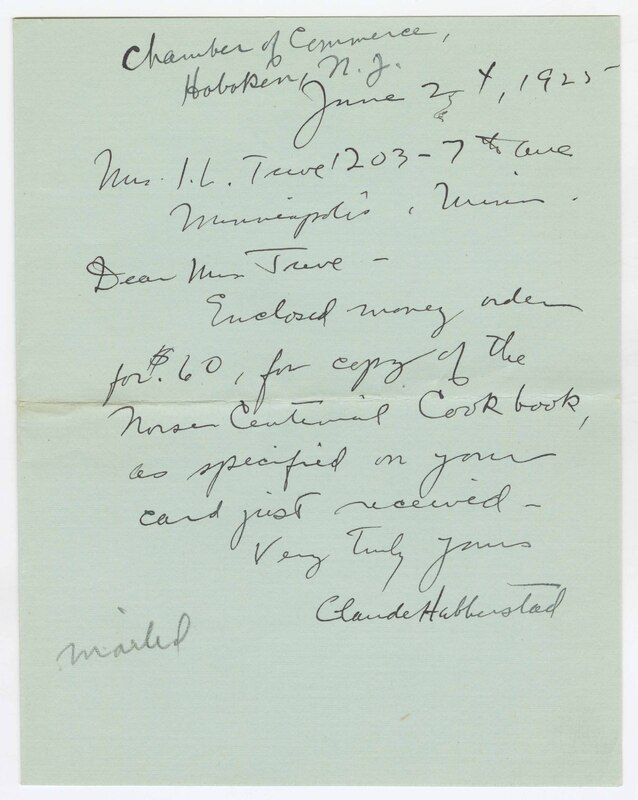 Chamber of Commerce,
Hoboken, N.J.
June 2 , 1925
Mrs. I.L. Treve 1203 - 7th ave
Minneapolis, Minn.
Dear Mrs Treve -
Enclosed money order
for $.60, for copy of the
Norse Centennial Cook book,
as specified on your
card just received -
Very Truly yours
Claude Habberstad
mailed